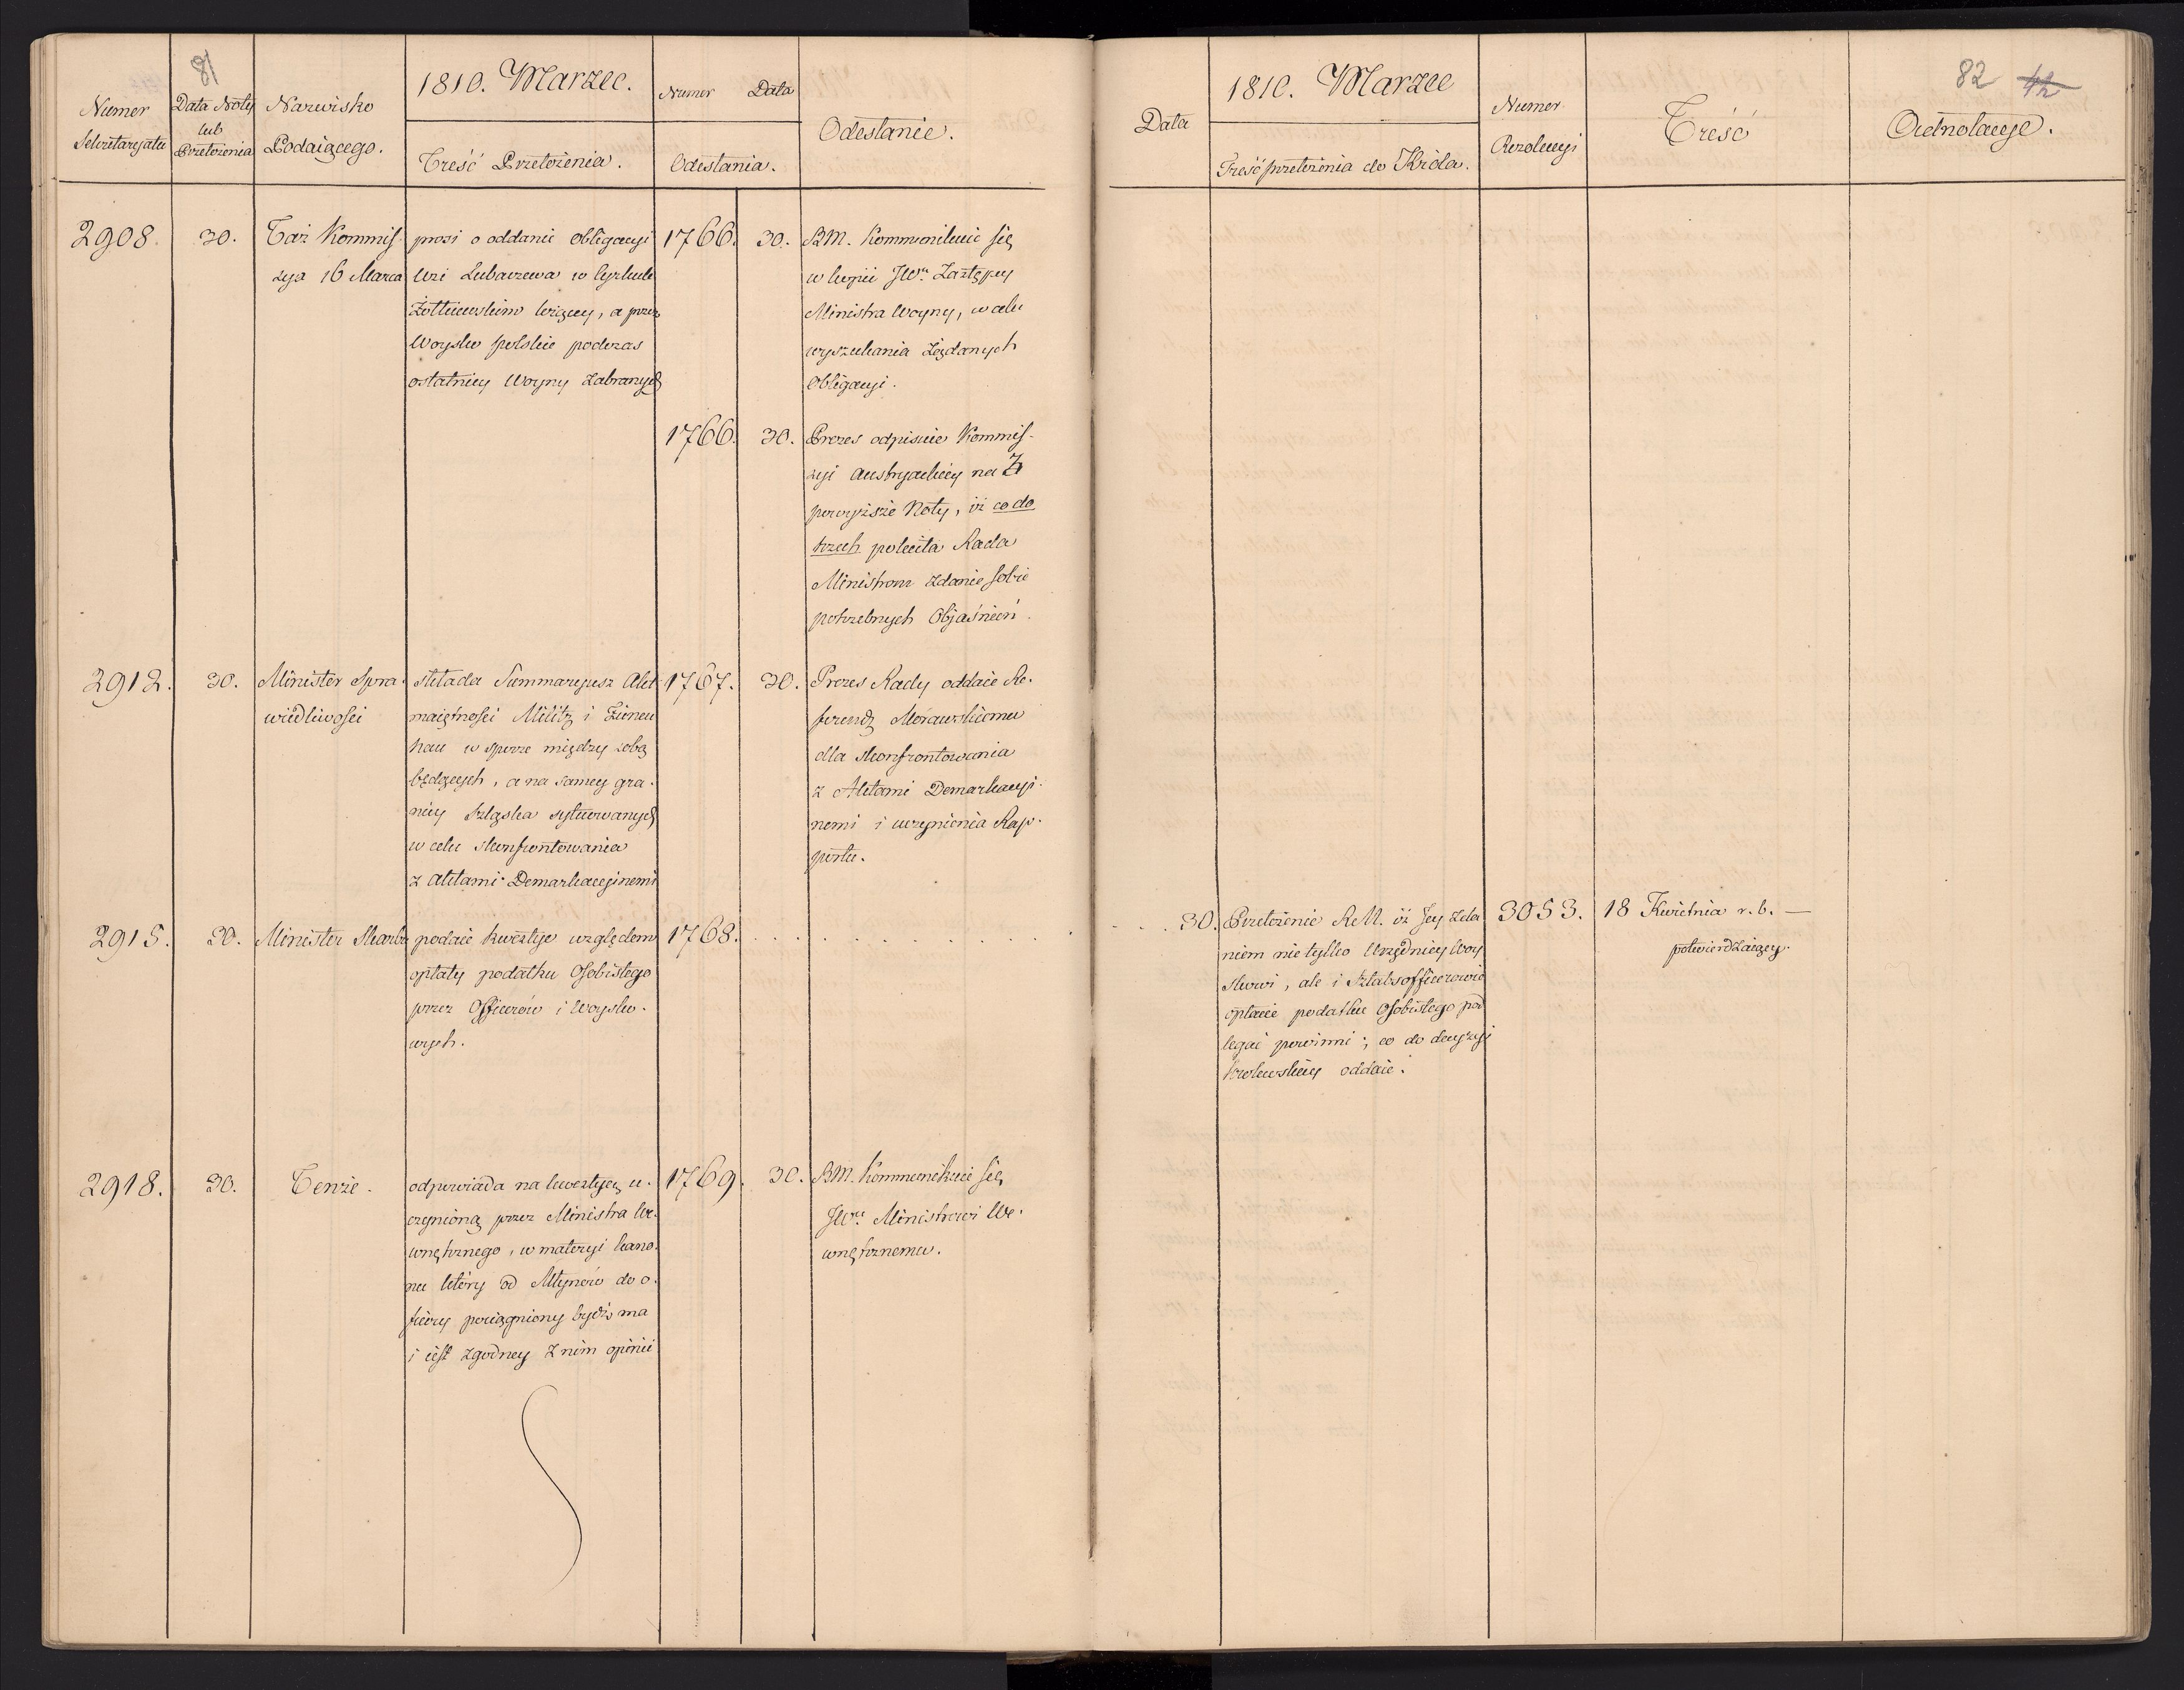 81
Numer
Sekretaryatu
Data Noty
lub
Przełożenia
Nazwisko
Podaiącego.
1810. Marzec.
Treść Przełożenia.
Numer Data
Odesłania.
Odesłanie.
2908. 30. Taż Kommis-
syja 16 Marca
prosi o oddanie Obligacyi
Wsi Lubaczewa w Cyrkule
Żołkiewskim leżącey, a przez
Woysko polskie podczas
ostatniey Woyny zabranych
1766. 30. RM. Kommunikuie się
w kopii JWu. Zastępcy
Ministra Woyny, w celu
wyszukania żądanych
Obligacyi.
1766. 30. Prezes odpisuie Kommis-
syi Austryackiey na 4
powyższe Noty, iż co do
trzech poleciła Rada
Ministrom zdanie sobie
potrzebnych Objaśnień.
2912. 30. Minister Spra-
wiedliwości
składa Summaryusz Akt
maiętności Militz i Ziuneu
hau w sporze między sobą
będących, a na samey gra-
nicy Szląska sytuowanych
w celu skonfrontowania
z Aktami Demarkacyinemi
1767. 30. Prezes Rady oddaie Re-
ferendz Morawskiemu
dla skonfrontowania
z Aktami Demarkacyi-
nemi i uczynienia Rap-
portu.
2915. 30. Minister Skarbu
podaie kwestyę względem
opłaty podatku Osobistego
przez Officerów i Woysko-
wych.
1768.
2918. 30. Tenże.
odpowiada na kwestyę u-
czynioną przez Ministra We-
wnętrznego, w materyi kano-
nu który od Młynów do o-
fiary pociągniony bydź ma
i iest zgodney z nim opinii
1769. 30. RM. Kommunikuie się
JWu. Ministrowi We-
wnętrznemu.
82 42
Data
1810. Marzec
Treść przełożenia do Króla.
Numer
Rezolucyi
Treść
Adnotacye.
30. Przełożenie R.M. iż Jey zda
niem nie tylko Urzędnicy Woy
skowi, ale i Sztabsofficerowie
opłacie podatku Osobistego pod
legać powinni; co do decyzyi
krolewskiey oddaie.
3053. 18 Kwietnia r. b. —
potwierdzaiącey.